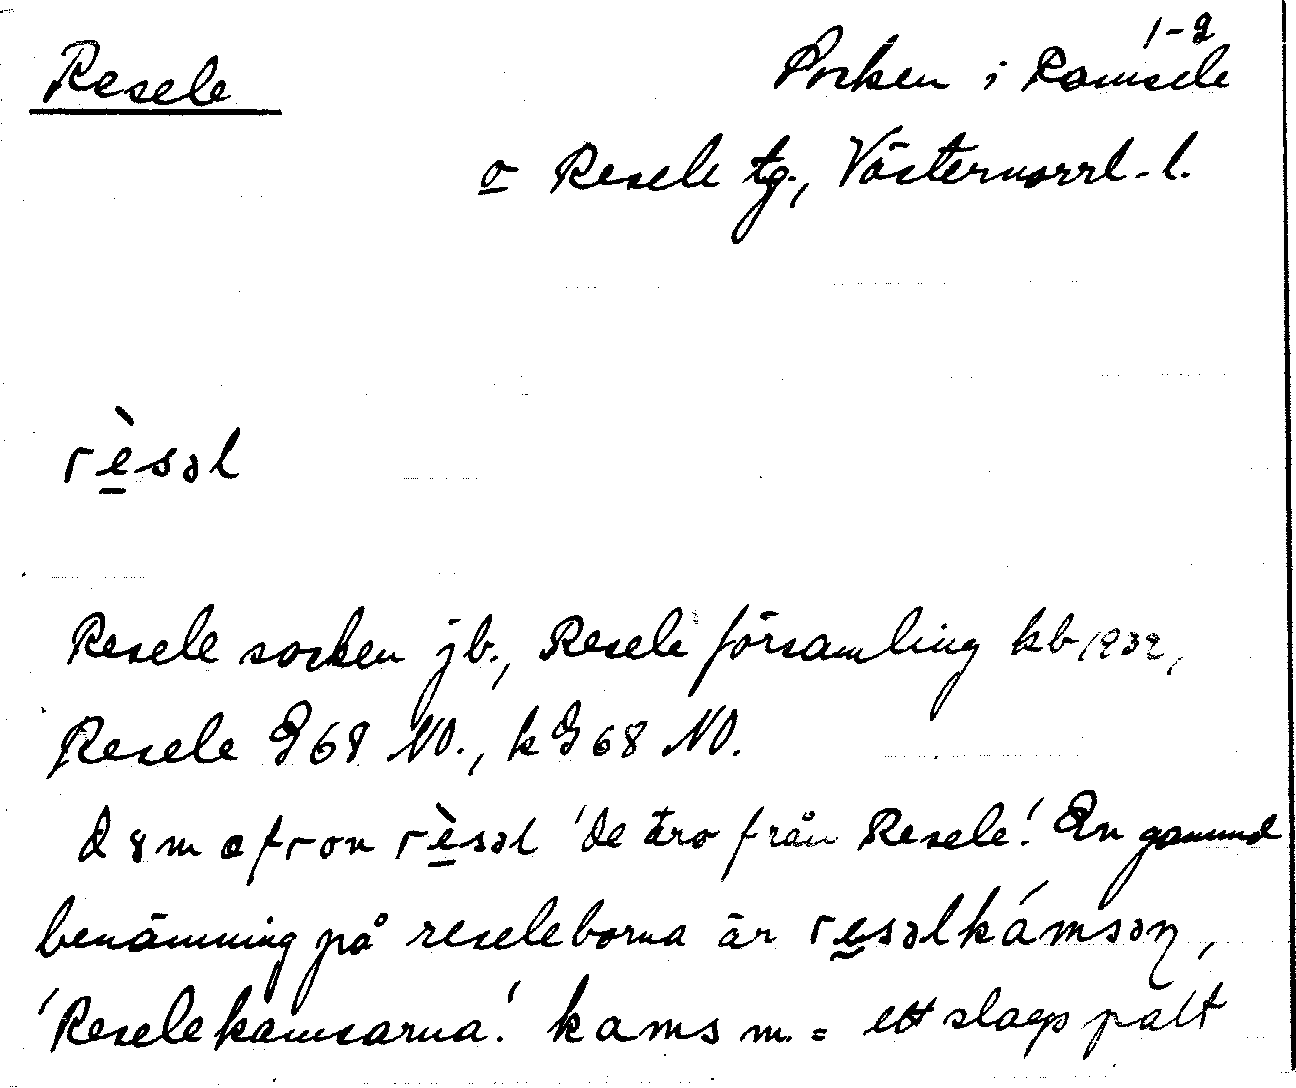 1-2
Resele Socken i Ramsele
o Resele tg., Västernorrl. l.
rè̱səl
Resele socken jb., Resele församling kb 1932,
Resele G 68 NO., k G 68 NO.
m ə fron rè̱səl 'de äro från Resele'. En gammal
benämning på reseleborna är re̱səlkámsən,
'Reselekamsarna'. kams m. = ett slags palt